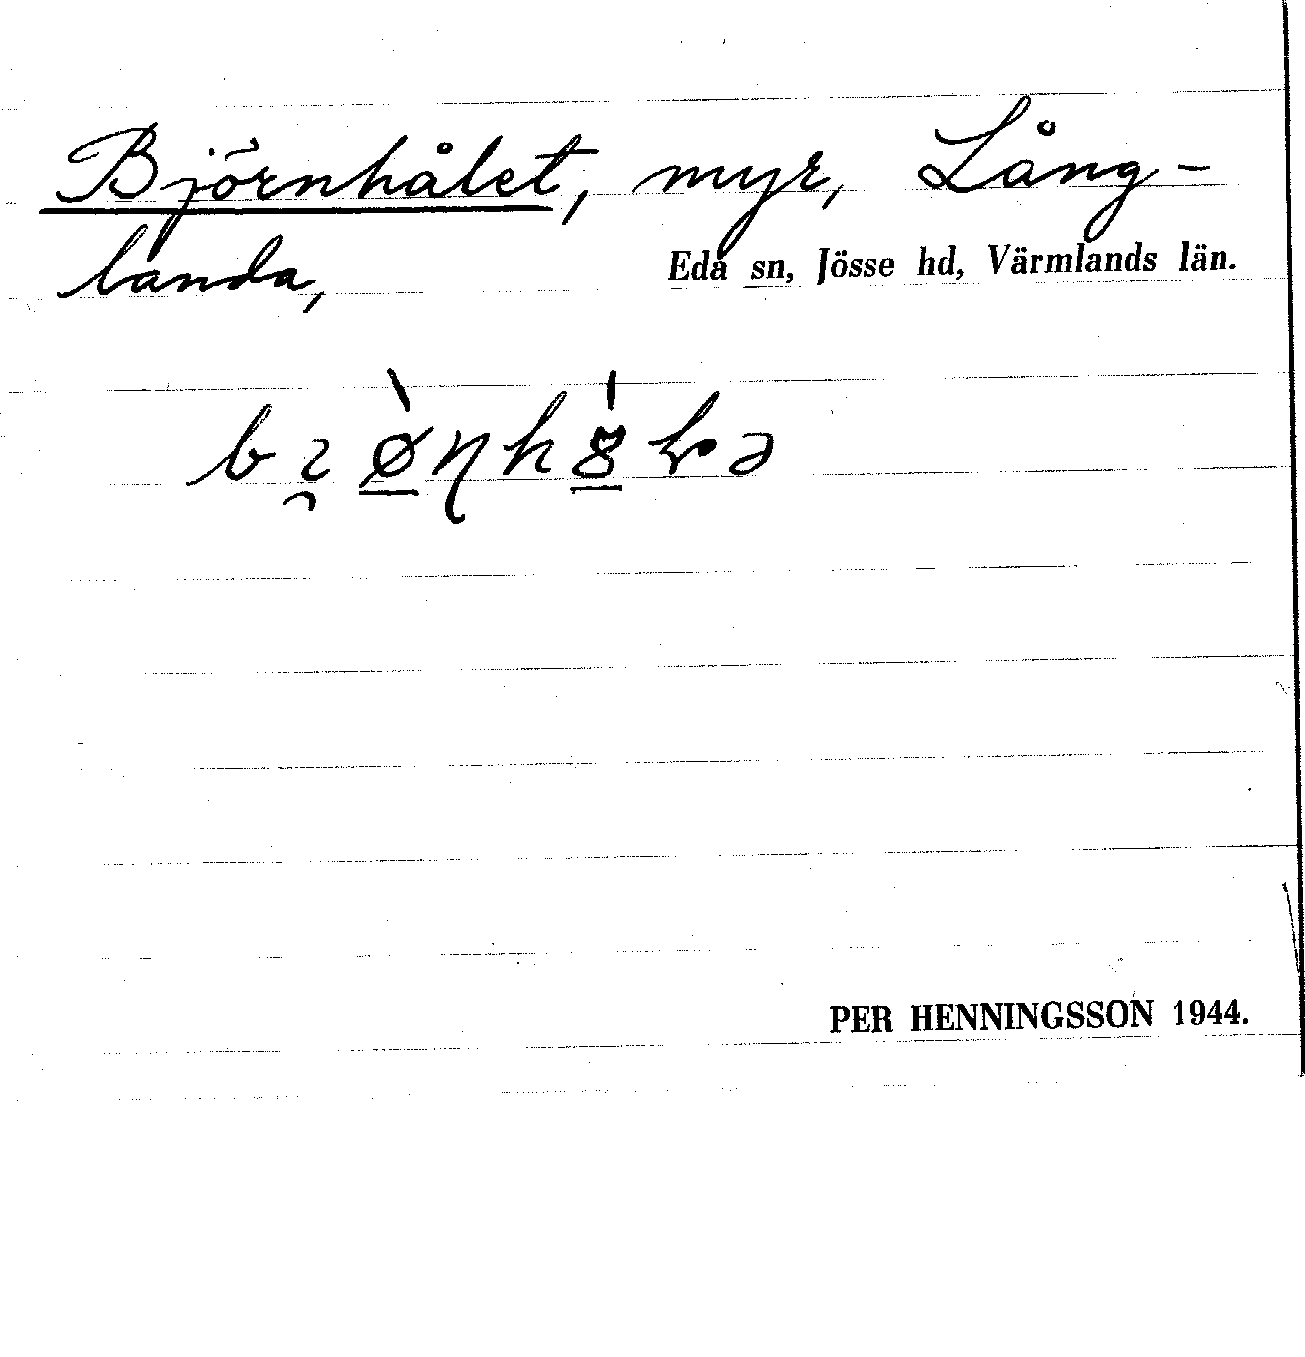 Björnhålet, myr, Lång-
landa,
Eda sn, Jösse hd, Värmlands län.
PER HENNINGSSON 1944.